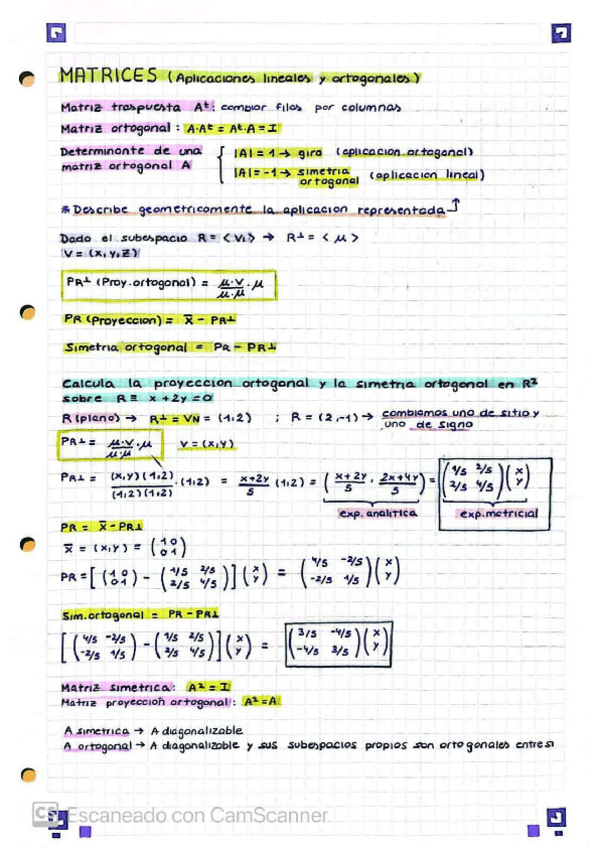 MATRICES (Aplicaciones lineales y ortogonales)
Matriz traspuesta Aᵗ: cambiar filas por columnas
Matriz ortogonal: A·Aᵗ = Aᵗ·A = I
Determinante de una matriz ortogonal A { |A| = 1 → giro (aplicacion ortogonal)
|A| = -1 → simetria ortogonal (aplicacion lineal)
* Describe geometricamente la aplicacion representada ↑
Dado el subespacio R = <V₁> → R⊥ = <μ>
V = (x,y,z)
PR⊥ (Proy. ortogonal) = μ·v / μ·μ · μ
PR (Proyeccion) = x̄ - PR⊥
Simetria ortogonal = PR - PR⊥
Calcula la proyeccion ortogonal y la simetria ortogonal en R²
sobre R ≡ x + 2y = 0
R (plano) → R⊥ = VN = (1,2) ; R = (2,-1) → cambiamos uno de sitio y
uno de signo
PR⊥ = μ·v / μ·μ · μ V = (x,y)
PR⊥ = (x,y)(1,2) / (1,2)(1,2) · (1,2) = x+2y / 5 (1,2) = ( x+2y / 5 , 2x+4y / 5 ) = ( 1/5 2/5 ; 2/5 4/5 ) ( x ; y )
exp. analitica exp. matricial
PR = x̄ - PR⊥
x̄ = (x,y) = ( 1 0 ; 0 1 )
PR = [ ( 1 0 ; 0 1 ) - ( 1/5 2/5 ; 2/5 4/5 ) ] ( x ; y ) = ( 4/5 -2/5 ; -2/5 1/5 ) ( x ; y )
Sim. ortogonal = PR - PR⊥
[ ( 4/5 -2/5 ; -2/5 1/5 ) - ( 1/5 2/5 ; 2/5 4/5 ) ] ( x ; y ) = ( 3/5 -4/5 ; -4/5 3/5 ) ( x ; y )
Matriz simetrica: A² = I
Matriz proyeccion ortogonal: A² = A
A simetrica → A diagonalizable
A ortogonal → A diagonalizable y sus subespacios propios son ortogonales entre si
CS Escaneado con CamScanner